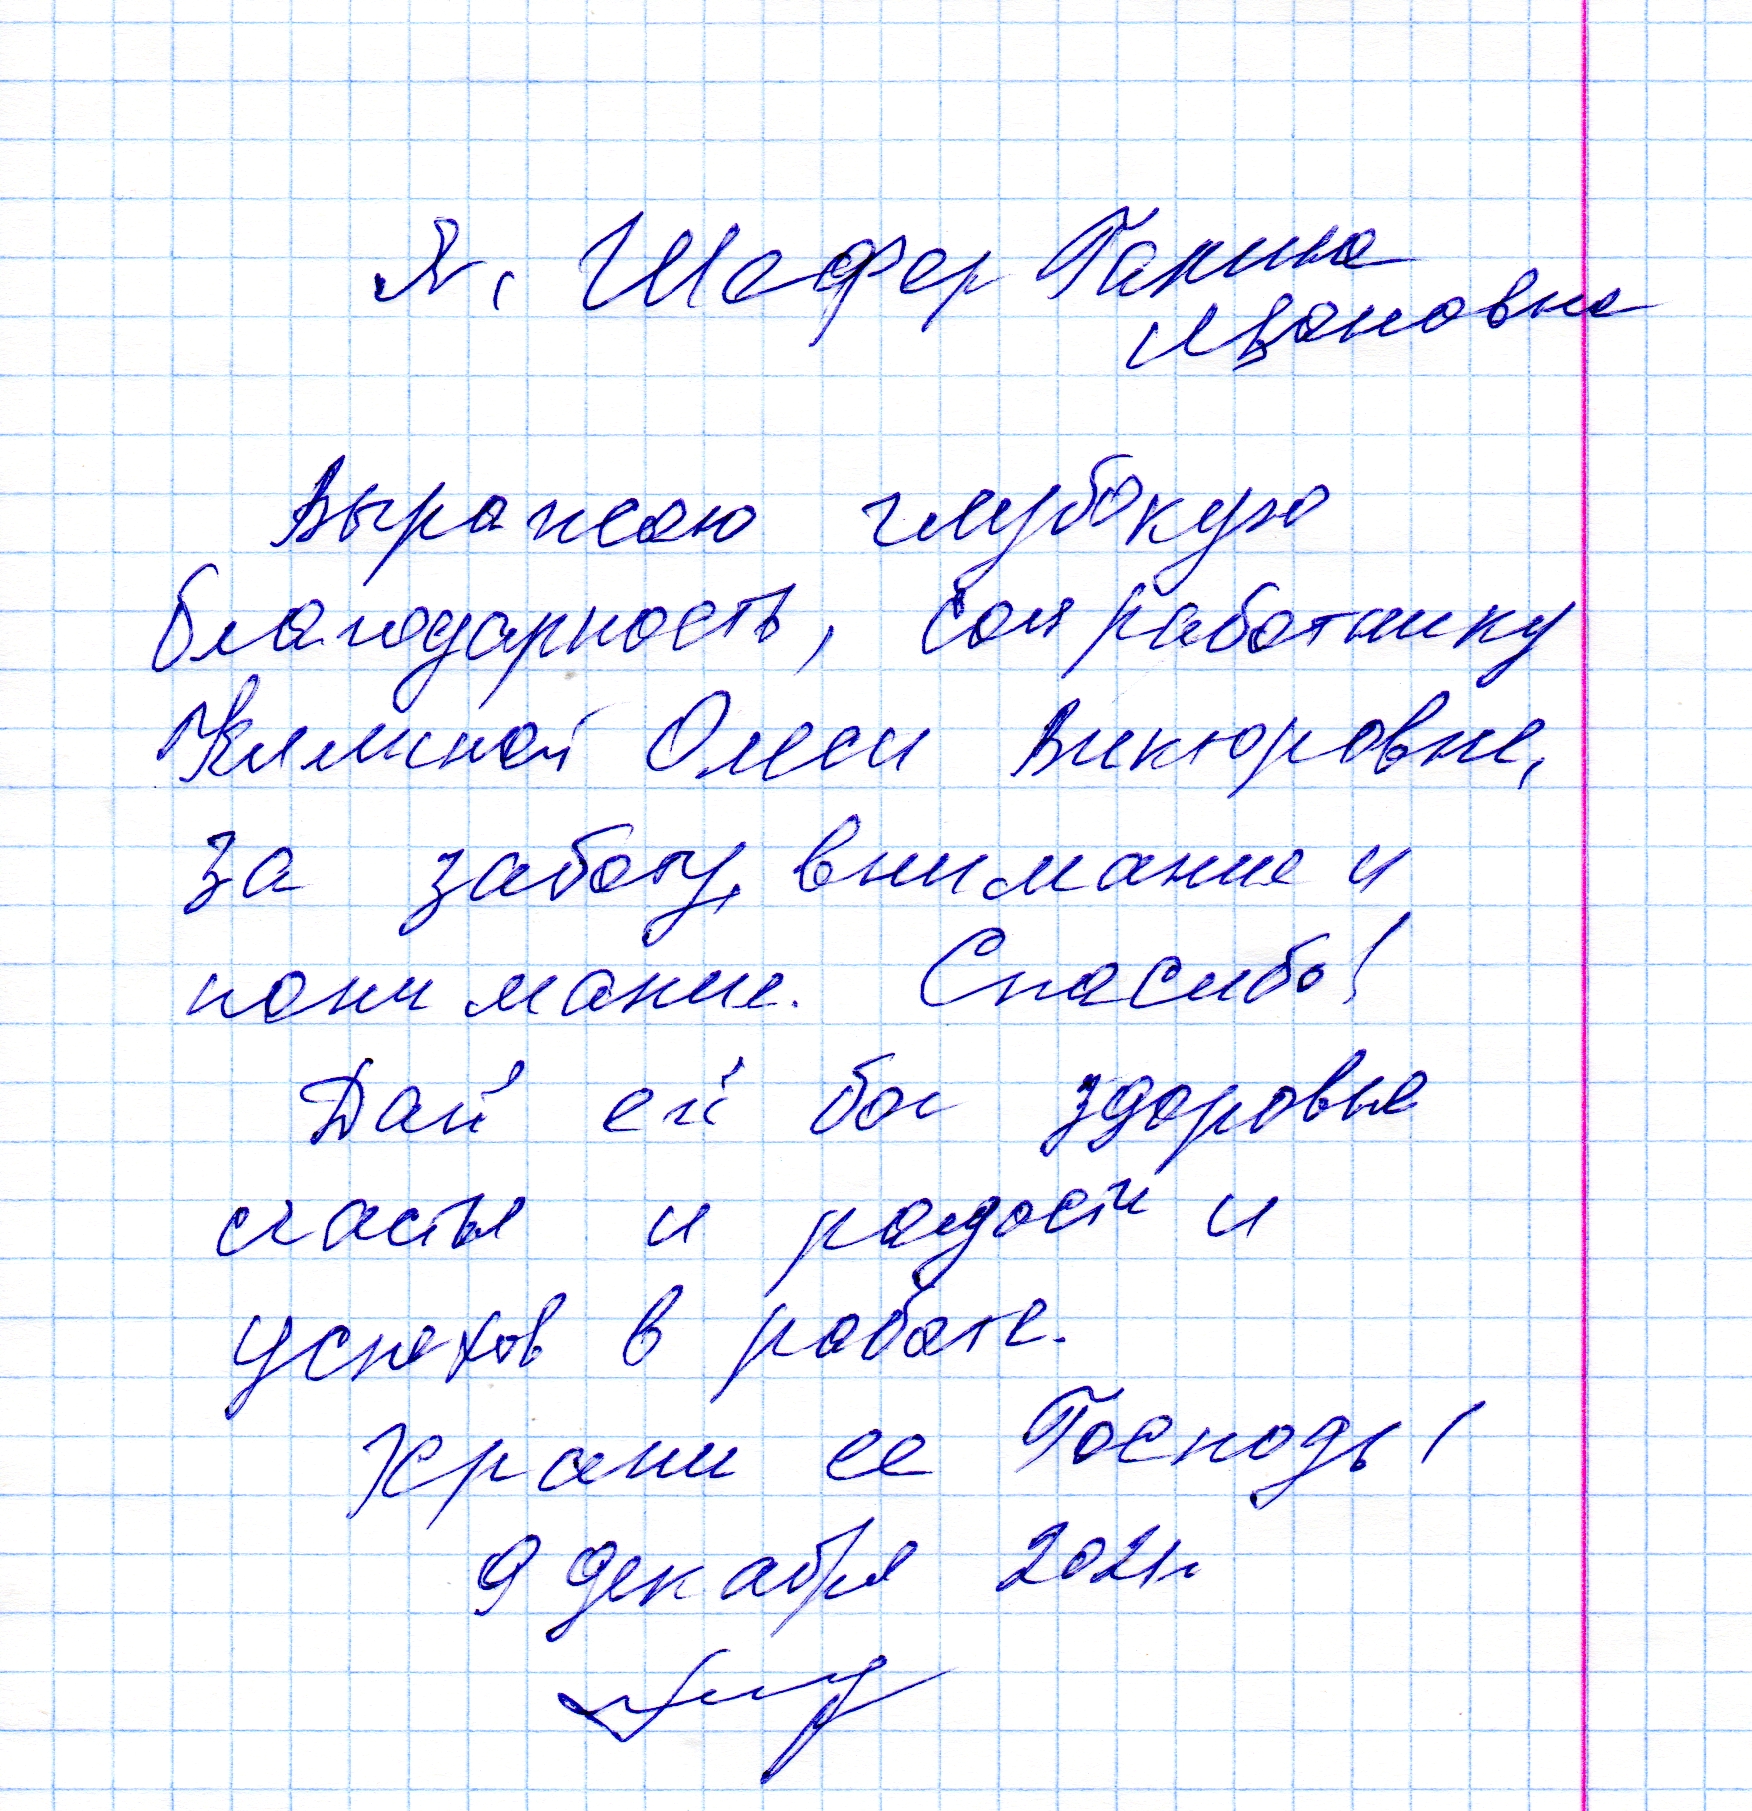 Я, Шефер Галина
Ивановна
Выражаю глубокую
благодарность, соц работнику
Климной Олеси Викторовне,
за заботу, внимание и
понимание. Спасибо!
Дай ей бог здоровье
счастья и радости и
успехов в работе.
Храни ее Господь!
9 декабря 2021г